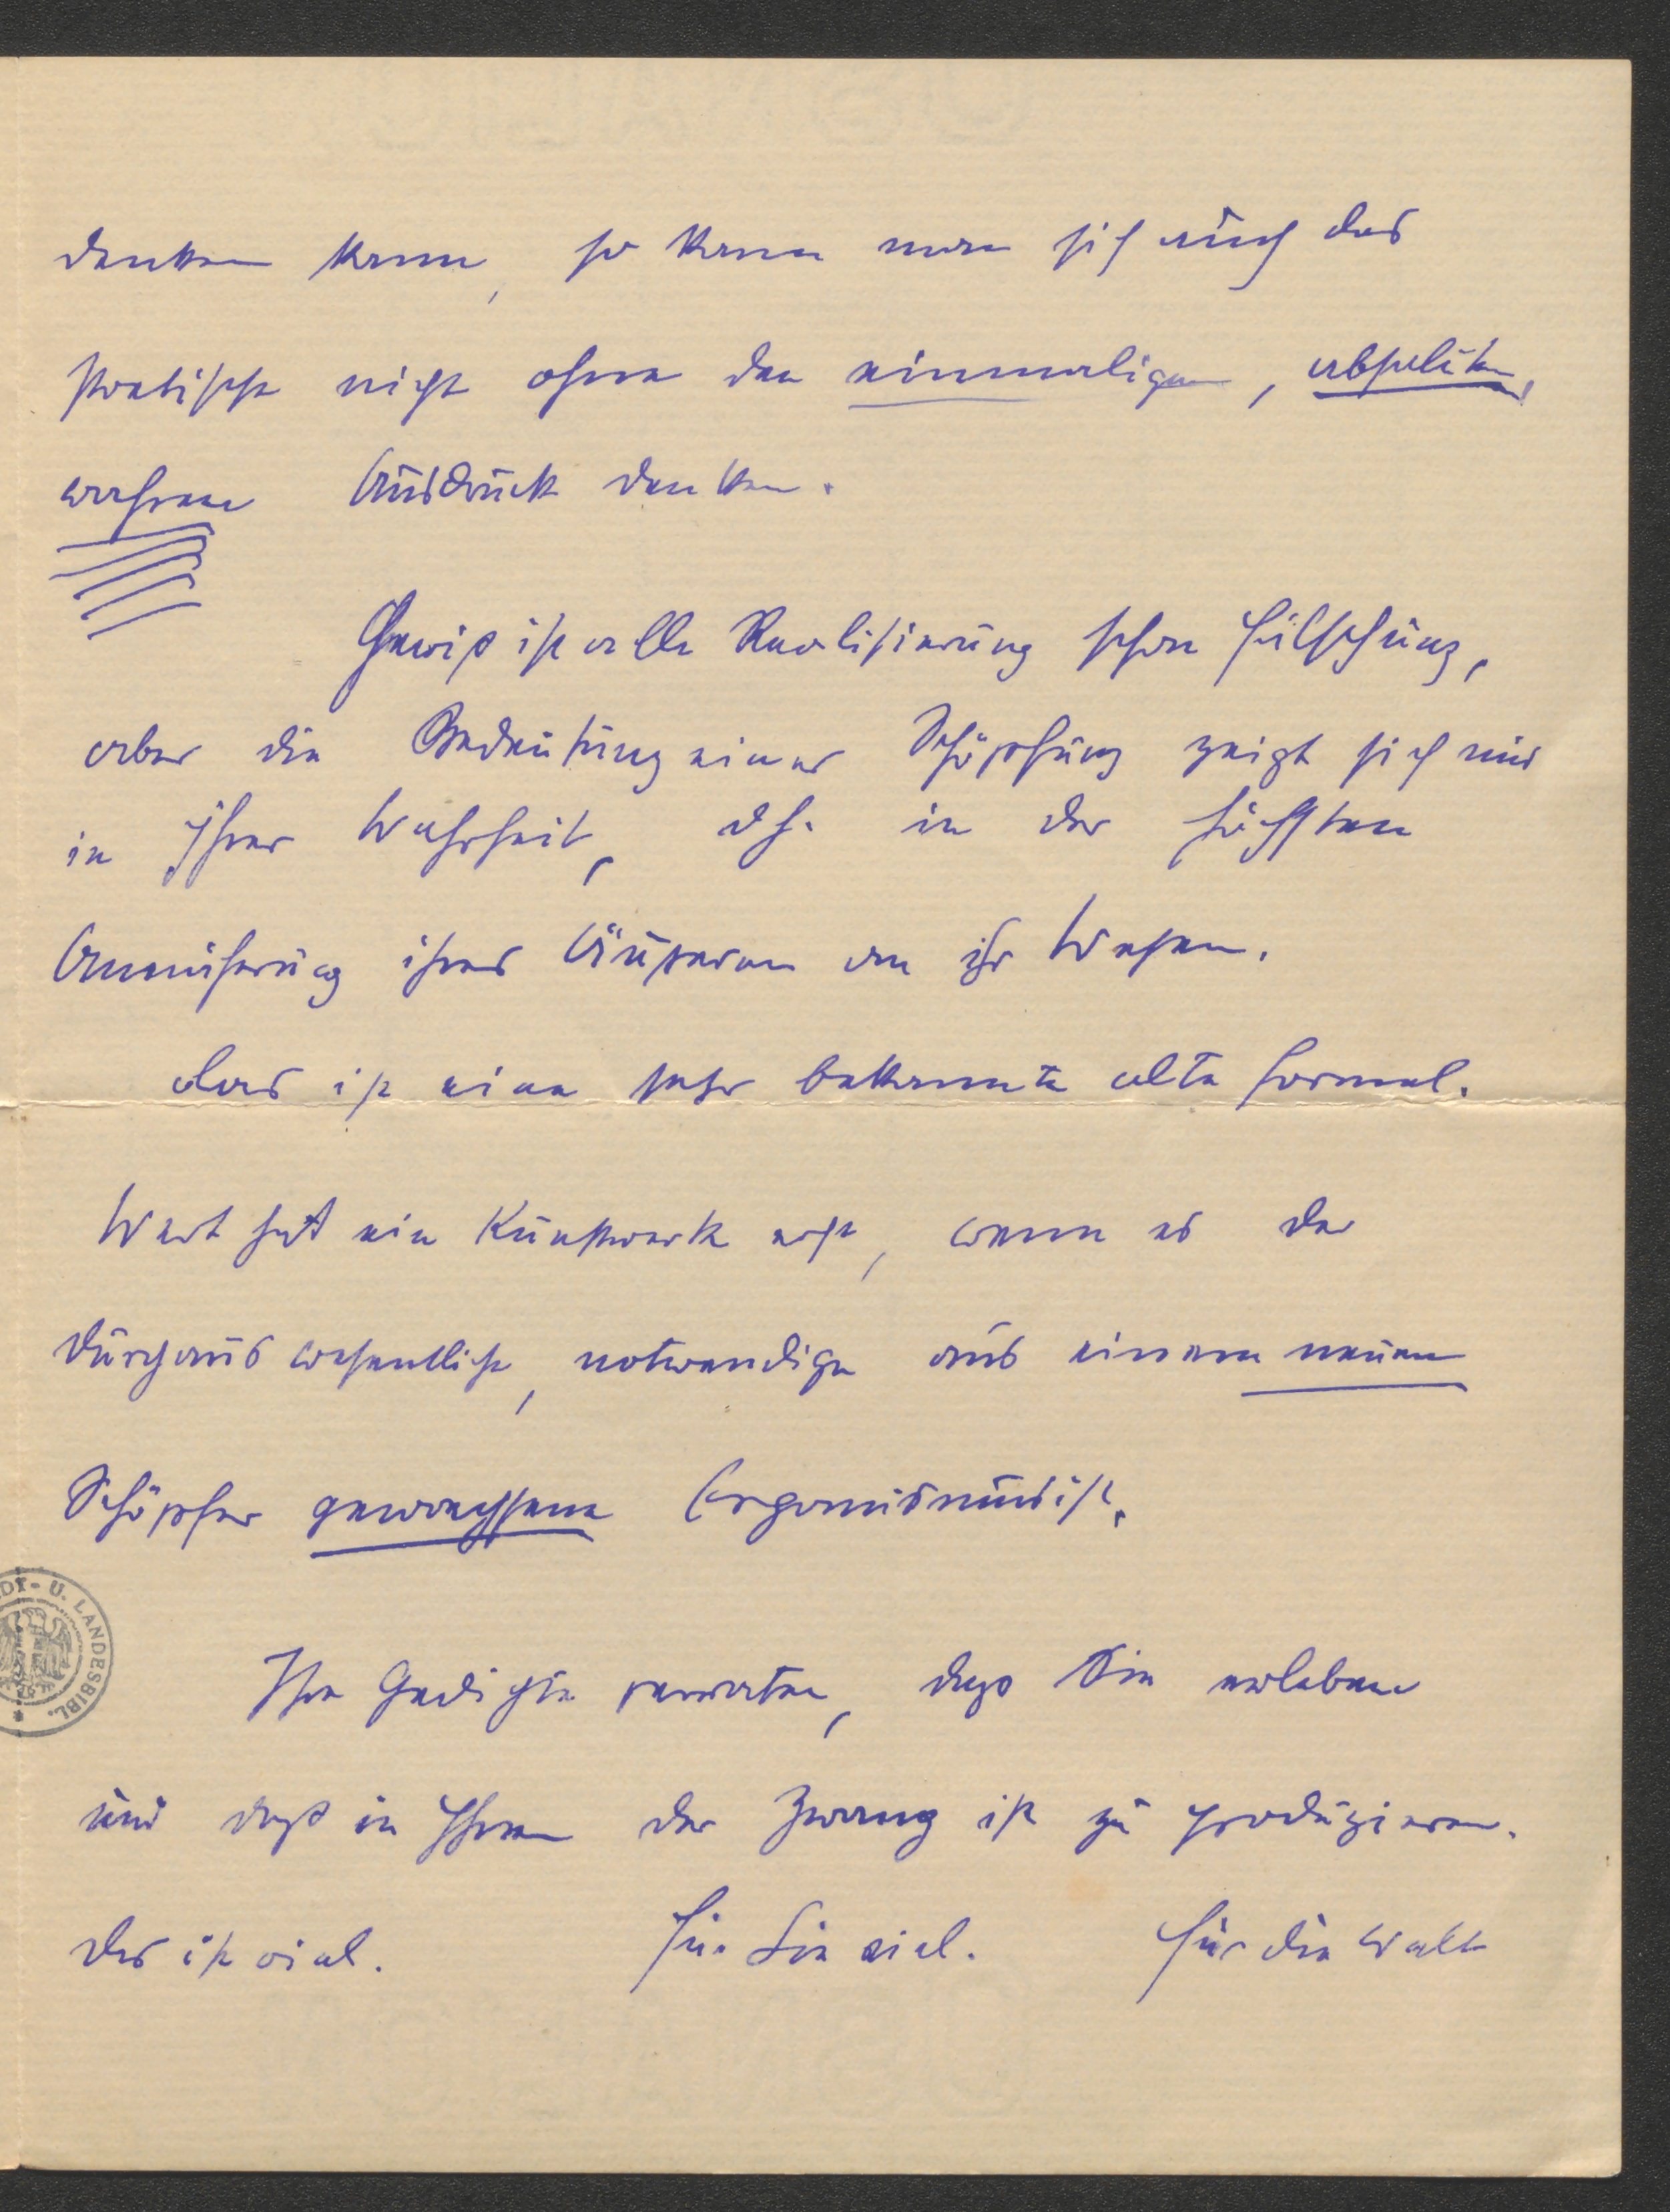 denken kann, so kann man sich auch das
Poetische nicht ohne den einmaligen, absoluten,
wahren Ausdruck denken.
Gewiß ist alle Realisierung schon Fälschung,
aber die Bedeutung einer Schöpfung zeigt sich nur
in Ihrer Wahrheit, dh. in der höchsten
Annäherung ihres Äußeren an ihr Wesen.
das ist eine sehr bekannte alte Formel.
Wert hat ein Kunstwerk erst, wenn es der
durchaus wesentliche, notwendige aus einem neuen
Schöpfer gewachsene Organismus ist.
Ihre Gedichte verraten, dass Sie erleben
und daß in Ihnen der Zwang ist zu produzieren.
Das ist viel. Für Sie viel. Für die Welt
DT- U. LANDESBIBL.